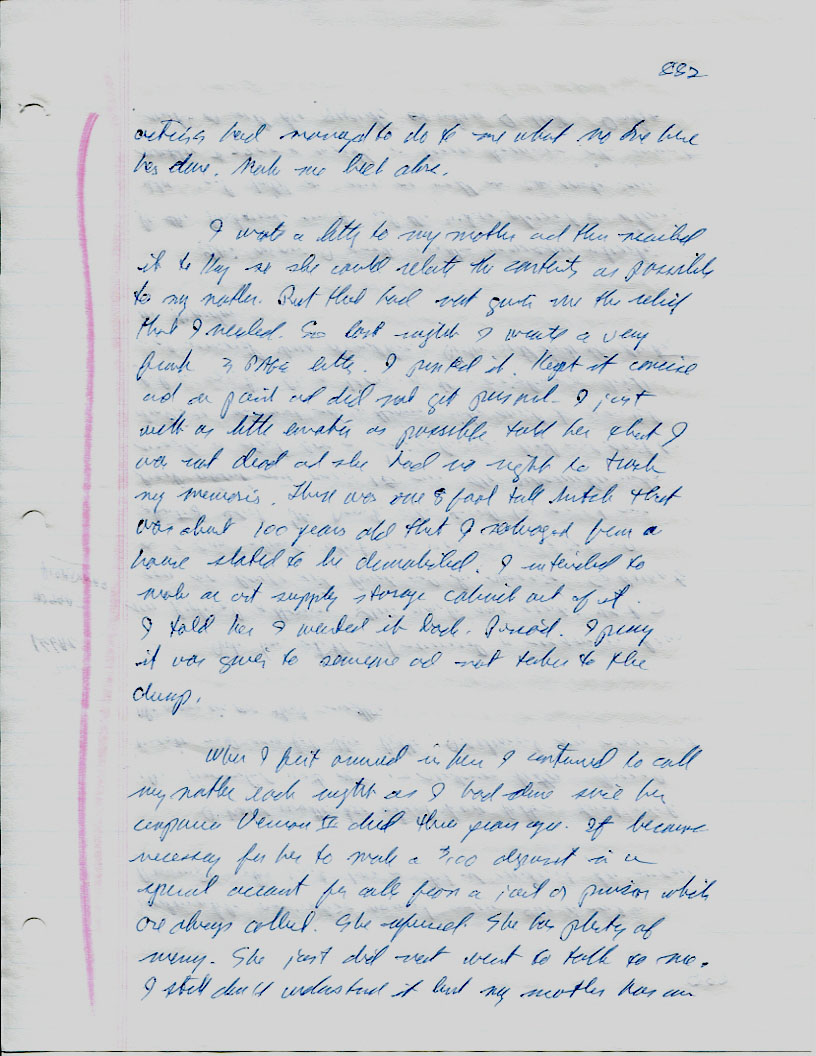 882
actions had managed to do to me what no one here
has done. Made me feel alone.
I wrote a letter to my mother and then mailed
it to Kay so she could relate the contents as possible
to my mother. But that had not given me the relief
that I needed. So last night I wrote a very
frank 3 PAGE letter. I printed it. Kept it concise
and on point and did not get personal. I just
with as little emotion as possible told her that I
was not dead and she had no right to trash
my memories. There was one 8 foot tall hutch that
was about 100 years old that I salvaged from a
house slated to be demolished. I intended to
make an art supply storage cabinet out of it.
I told her I wanted it back. Period. I pray
it was given to someone and not taken to the
dump.
When I first arrived in here I continued to call
my mother each night as I had done since her
companion Vernon II died three years ago. It became
necessary for her to make a $100 deposit in a
special account for calls from a jail or prison which
are always collect. She refused. She has plenty of
money. She just did not want to talk to me.
I still don't understand it but my mother has an